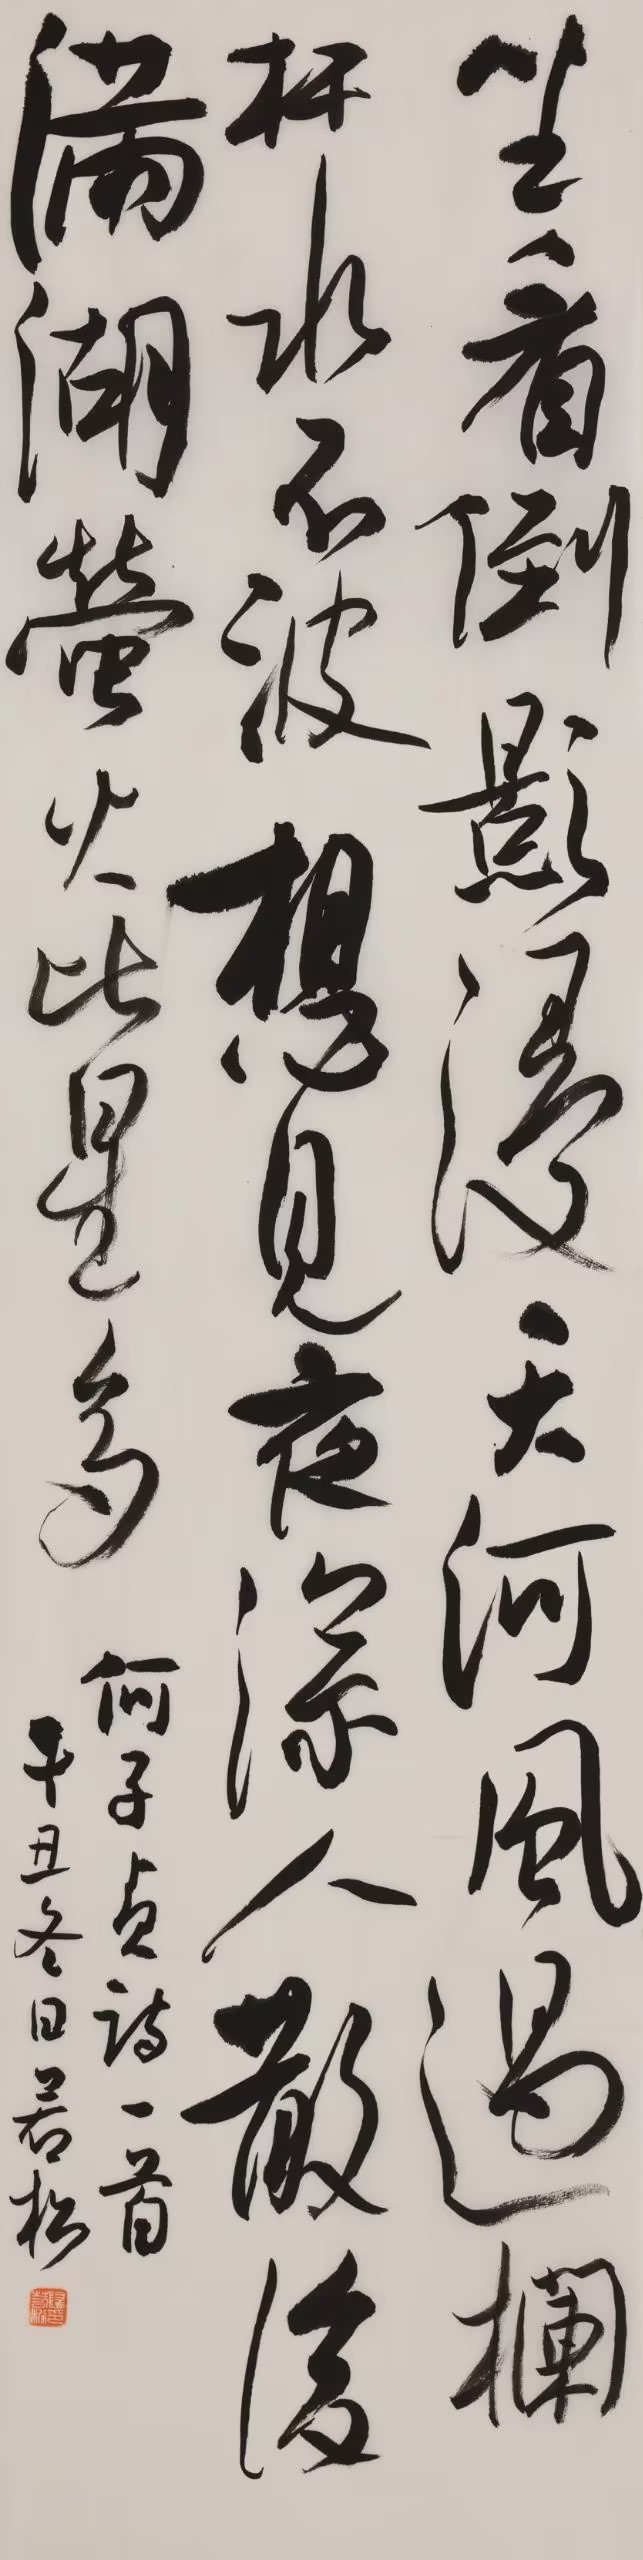 坐看倒影浸天河風過欄
杆水不波想見夜深人散後
滿湖螢火比星多
何子貞詩一首
辛丑冬日若松